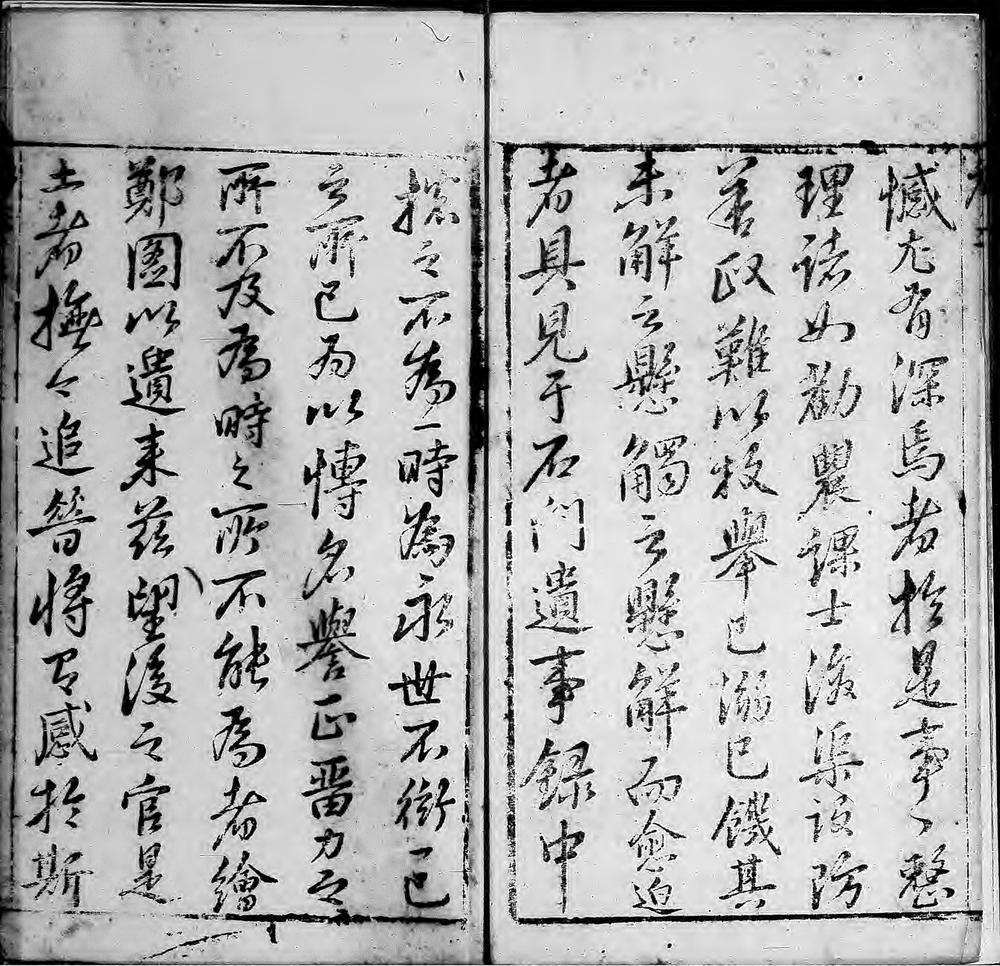 憾尤有深焉者於是事々整
理諸如勸農課士濬渠設防
善政難以枚舉己溺己饑其
未解之懸觸之懸解而愈迫
者具見于石門遺事錄中
之不為一時為永世不衒己
之所已為以博名譽正嗇力之
所不及為時之所不能為者繪
鄭圖以遺来茲望後之官是
土者撫今追昔將有感於斯